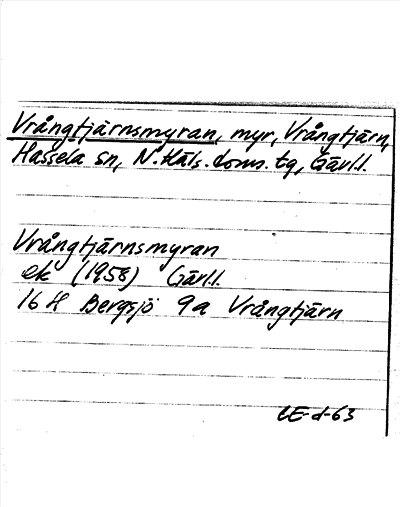 Vrångtjärnsmyran, myr, Vrångtjärn,
Hassela sn, N. Häls. doms. tg, Gävl.l.
Vrångtjärnsmyran
ek (1958) Gävl.l.
16 H Bergsjö 9a Vrångtjärn
LE-d-63